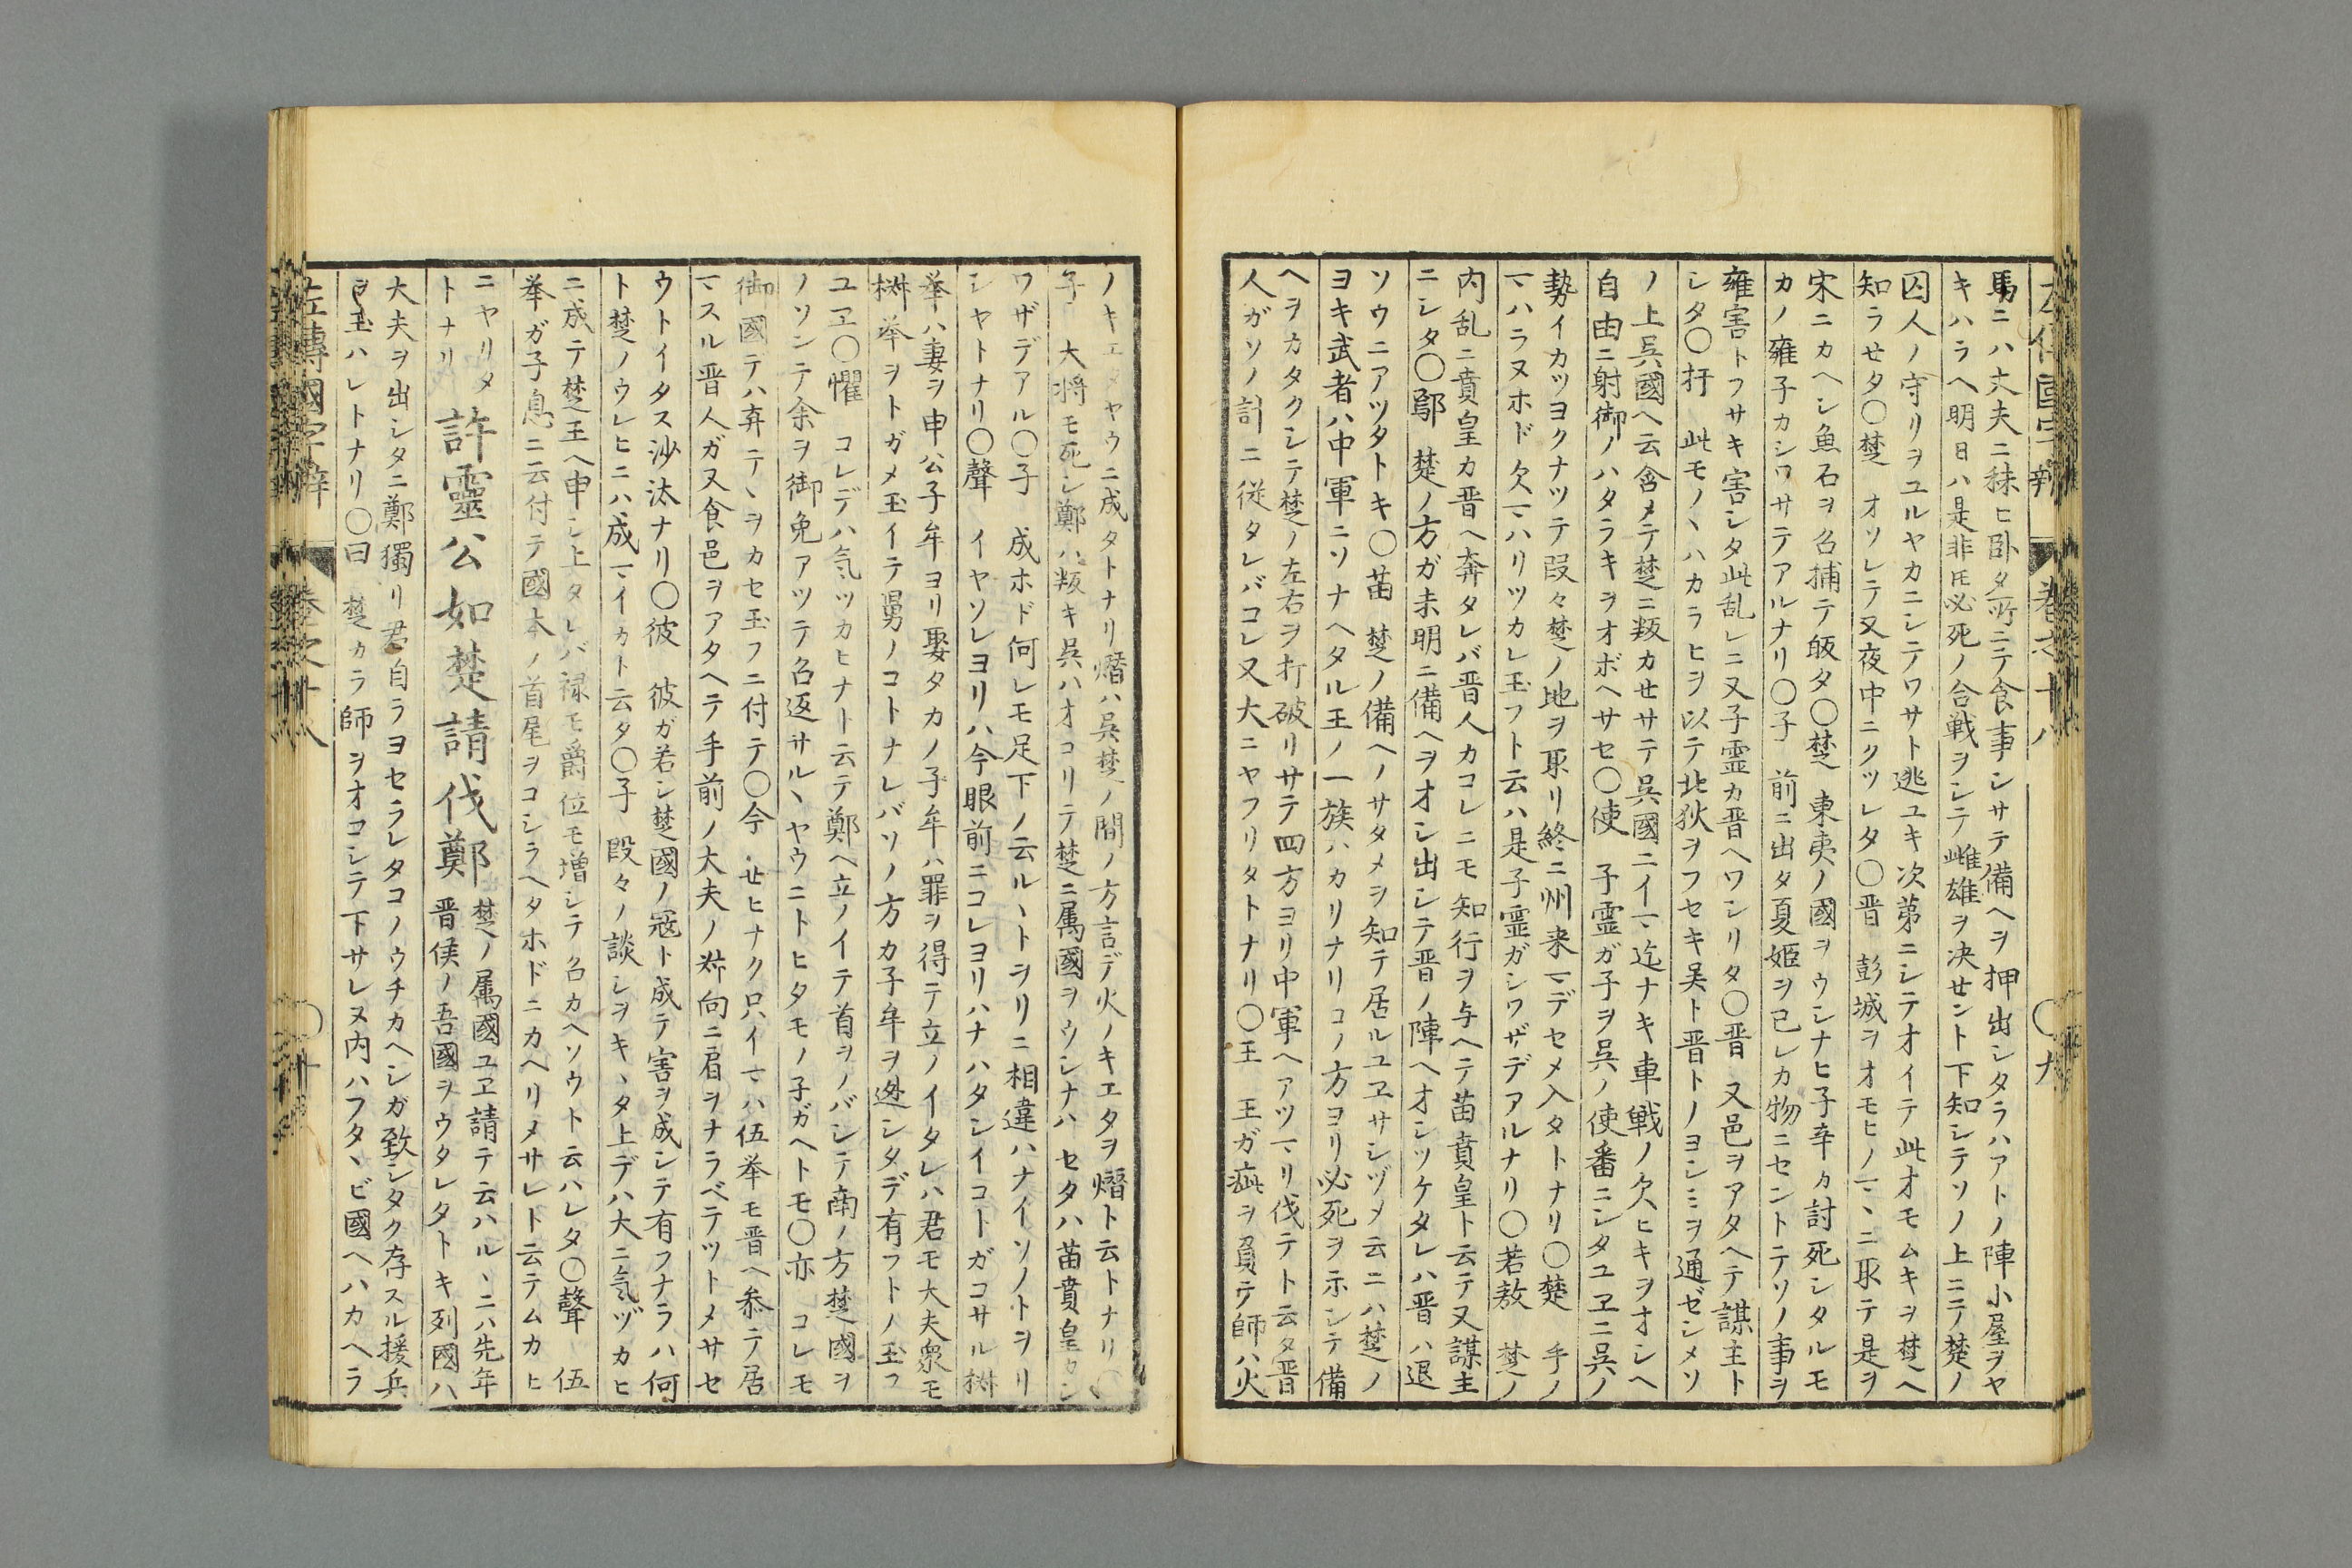 左傳國字辨 卷之十八 〇九
馬ニハ丈夫ニ秣ヒ卧タ所ニテ食事シサテ備ヘヲ押出シタラハアトノ陣小屋ヲヤ
キハラヘ明日ハ是非𪜈必死ノ合戦ヲシテ雌雄ヲ决セント下知シテソノ上ニテ楚ノ
囚人ノ守リヲユルヤカニシテワサト逃ユキ次第ニシテオイテ此オモムキヲ楚ヘ
知ラせタ〇楚 オソレテ又夜中ニクツレタ〇晋 彭城ヲオモヒノマヽニ取テ是ヲ
宋ニカヘシ魚石ヲ召捕テ皈タ〇楚 東夷ノ國ヲウシナヒ子辛カ討死シタルモ
カノ雍子カシワサテアルナリ〇子 前ニ出タ夏姫ヲ己レカ物ニセントテソノ事ヲ
雍害トフサキ害シタ此乱レニ又子霊カ晋ヘワシリタ〇晋 又邑ヲアタヘテ謀主ト
シタ〇扞 此モノヽハカラヒヲ以テ北狄ヲフセキ吴ト晋トノヨシミヲ通ゼシメソ
ノ上呉國ヘ云含メテ楚ニ叛カせサテ呉國ニイマ迄ナキ車戦ノ欠ヒキヲオシヘ
自由ニ射御ノハタラキヲオボヘサセ〇使 子霊ガ子ヲ呉ノ使番ニシタユヱニ呉ノ
勢イカツヨクナツテ段々楚ノ地ヲ取リ終ニ州来マデセメ入タトナリ〇楚 手ノ
マハラヌホド欠マハリツカレ玉フト云ハ是子霊ガシワザデアルナリ〇若敖 楚ノ
内乱ニ賁皇カ晋ヘ奔タレバ晋人カコレニモ知行ヲ与ヘテ苗賁皇ト云テ又謀主
ニシタ〇鄢 楚ノ方ガ未明ニ備ヘヲオシ出シテ晋ノ陣ヘオシツケタレハ晋ハ退
ソウニアツタトキ〇苗 楚ノ備ヘノサタメヲ知テ居ルユヱサシヅメ云ニハ楚ノ
ヨキ武者ハ中軍ニソナヘタル王ノ一族ハカリナリコノ方ヨリ必死ヲ示シテ備
ヘヲカタクシテ楚ノ左右ヲ打破リサテ四方ヨリ中軍ヘアツマリ伐テト云タ晋
人ガソノ計ニ従タレバコレ又大ニヤフリタトナリ〇王 王ガ疵ヲ負テ師ハ火
ノキエタヤウニ成タトナリ熸ハ呉楚ノ間ノ方言デ火ノキエタヲ熸ト云トナリ〇
子 大将モ死シ鄭ハ叛キ呉ハオコリテ楚ニ属國ヲウシナハセタハ苗賁皇カシ
ワザデアル〇子 成ホド何レモ足下ノ云ルヽトヲリニ相違ハナイソノトヲリ
ジヤトナリ〇聲 イヤソレヨリハ今眼前ニコレヨリハナハタシイコトガコサル椒
挙ハ妻ヲ申公子牟ヨリ娶タカノ子牟ハ罪ヲ得テ立ノイタレハ君モ大夫衆モ
椒挙ヲトガメ玉イテ舅ノコトナレバソノ方カ子牟ヲ迯シタデ有フトノ玉フ
ユヱ〇懼 コレデハ気ツカヒナト云テ鄭ヘ立ノイテ首ヲノバシテ南ノ方楚國ヲ
ノソンテ余ヲ御免アツテ召返サルヽヤウニトヒタモノ子ガヘトモ〇亦 コレモ
御國テハ弃テヽヲカセ玉フニ付テ〇今 せヒナク只イマハ伍挙モ晋ヘ叅テ居
マスル晋人ガ又食邑ヲアタヘテ手前ノ大夫ノ叔向ニ肩ヲナラベテツトメサセ
ウトイタス沙汰ナリ〇彼 彼ガ若シ楚國ノ冦ト成テ害ヲ成シテ有フナラハ何
ト楚ノウレヒニハ成マイカト云タ〇子 段々ノ談シヲキヽタ上デハ大ニ気ヅカヒ
ニ成テ楚王ヘ申シ上タレバ禄モ爵位モ増シテ召カヘソウト云ハレタ〇聲 伍
挙ガ子息ニ云付テ國本ノ首尾ヲコシラヘタホドニカヘリメサレト云テムカヒ
ニヤリメ 許靈公如楚請伐鄭 楚ノ属國ユヱ請テ云ハルヽニハ先年
トナリ 晋侯ノ吾國ヲウタレタトキ列國ハ
大夫ヲ出シタニ鄭獨リ君自ラヨセラレタコノウチカヘシガ致シタク存スル援兵
ヲ玉ハレトナリ〇曰 楚カラ師ヲオコシテ下サレヌ内ハフタヽビ國ヘハカヘラ
左傳國字辨 卷之十八 〇十